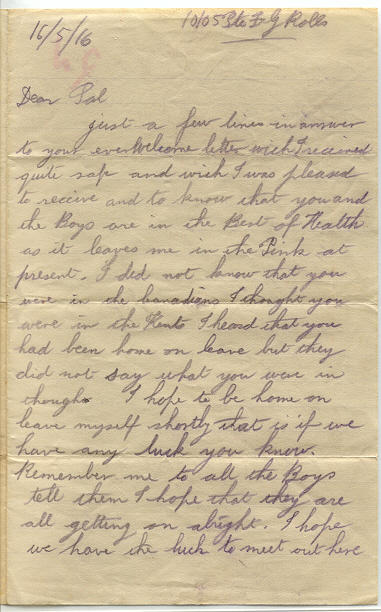 16/5/16
10105 Pte F G Rolls
Dear Pal
just a few lines in answer
to your ever Welcome letter wich I received
quite safe and wich I was pleased
to receive and to know that you and
the Boys are in the Best of Health
as it leaves me in the Pink at
present. I did not know that you
were in the Canadians I thought you
were in the Kents I heard that you
had been home on leave but they
did not say what you were in
though. I hope to be home on
leave myself shortly that is if we
have any luck you know.
Remember me to all the Boys
tell them I hope that they are
all getting on alright. I hope
we have the luck to meet out here